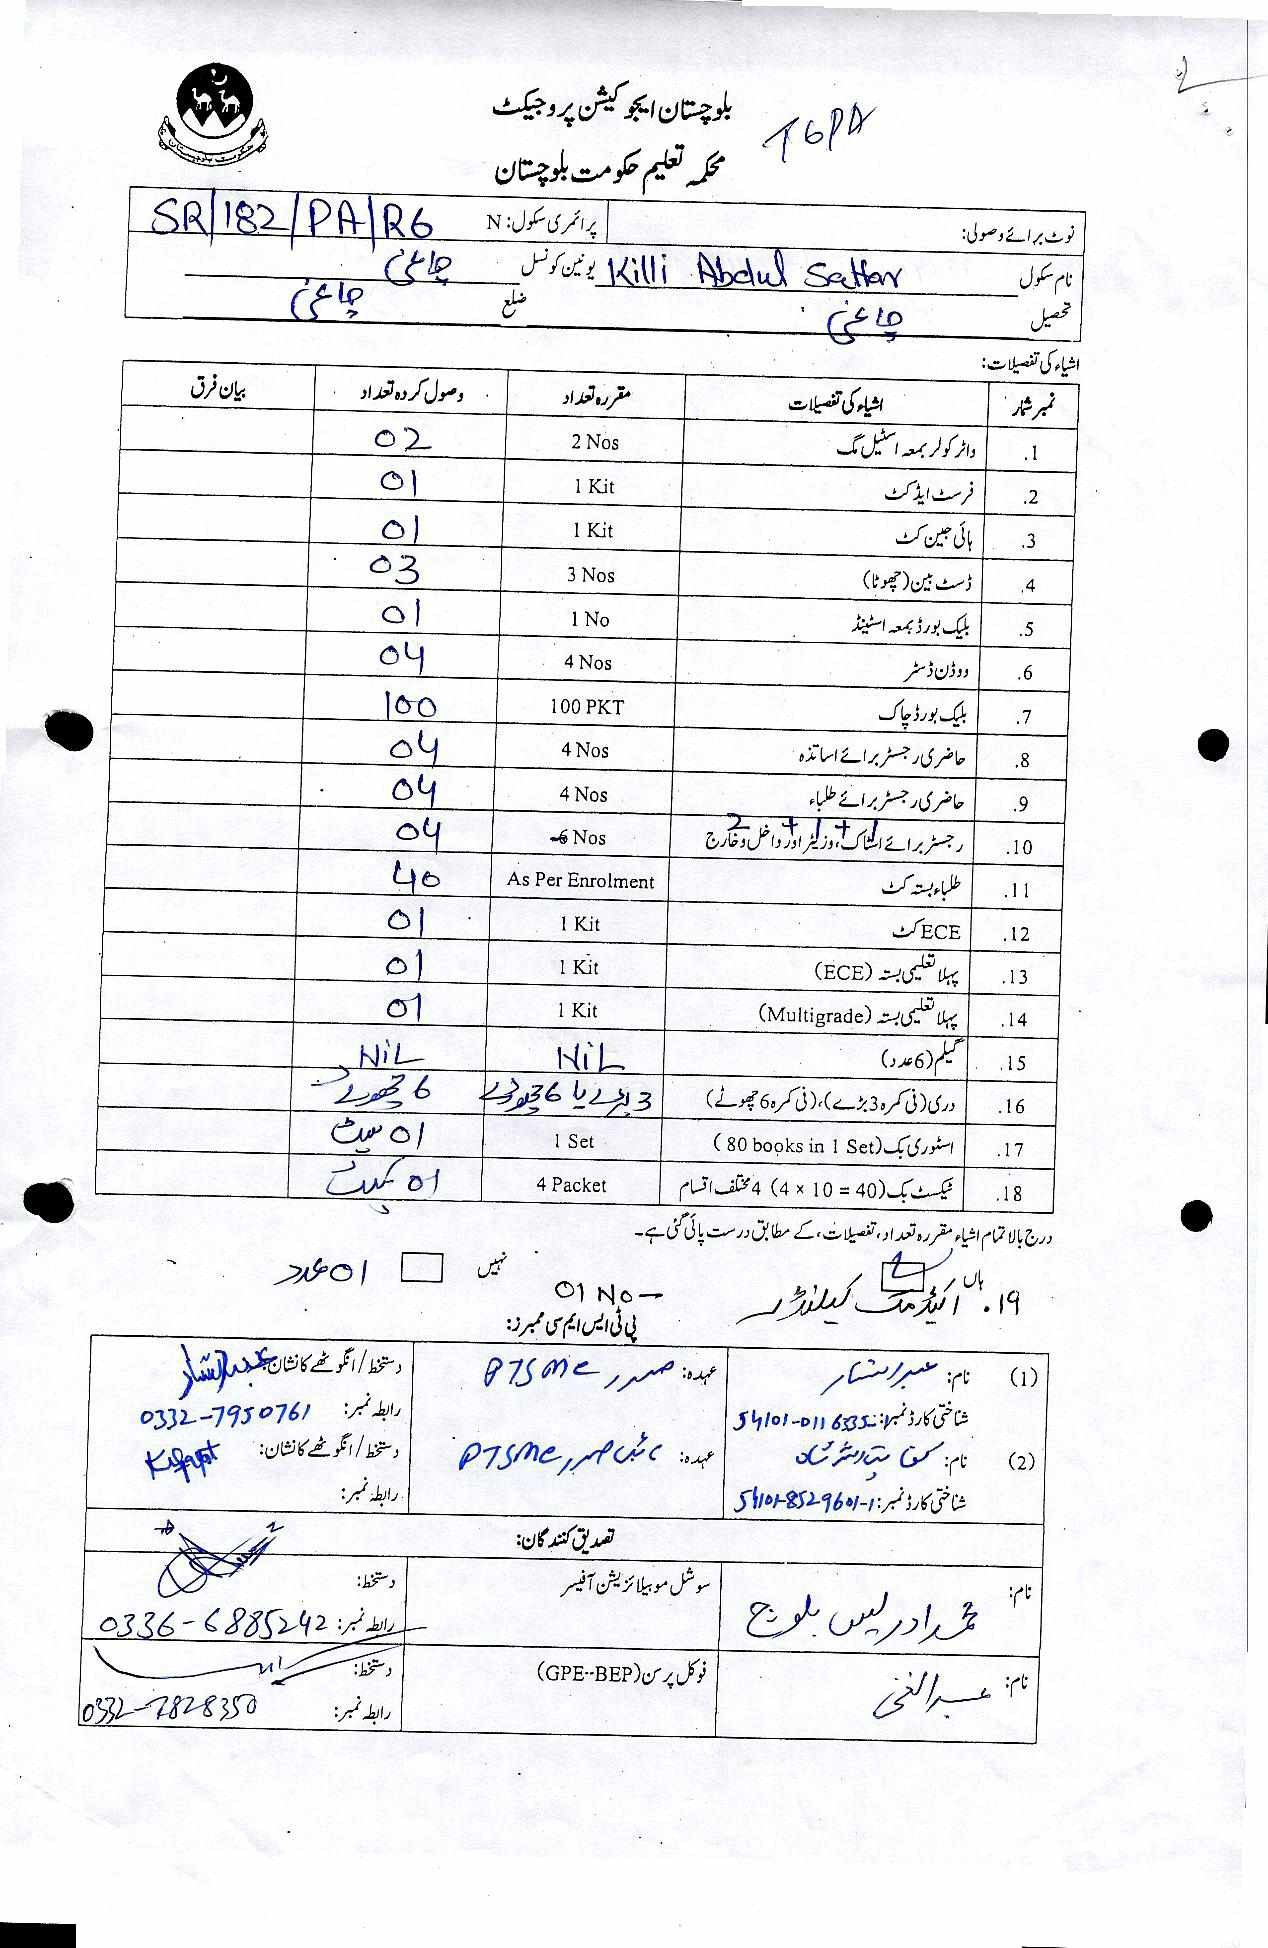 بلوچستان ایجوکیشن پروجیکٹ
TGPA
محکمہ تعلیم حکومت بلوچستان
حکومت بلوچستان
نوٹ برائے وصولی: پرائمری سکول: N SR/182/PA/R6
نام سکول Killi Abdul Sattar یونین کونسل چاغی
تحصیل چاغی ضلع چاغی
اشیاء کی تفصیلات:
نمبر شمار اشیاء کی تفصیلات مقررہ تعداد وصول کردہ تعداد بیان فرق
1. واٹر کولر بمعہ اسٹیل مگ 2 Nos 02
2. فرسٹ ایڈ کٹ 1 Kit 01
3. ہائی جین کٹ 1 Kit 01
4. ڈسٹ بین (چھوٹا) 3 Nos 03
5. بلیک بورڈ بمعہ اسٹینڈ 1 No 01
6. ووڈن ڈسٹر 4 Nos 04
7. بلیک بورڈ چاک 100 PKT 100
8. حاضری رجسٹر برائے اساتذہ 4 Nos 04
9. حاضری رجسٹر برائے طلباء 4 Nos 04
2 + 1 + 1
10. رجسٹر برائے اسٹاک، وزیٹر اور داخل و خارج 6 Nos 04
11. طلباء بستہ کٹ As Per Enrolment 40
12. ECE کٹ 1 Kit 01
13. پہلا تعلیمی بستہ (ECE) 1 Kit 01
14. پہلا تعلیمی بستہ (Multigrade) 1 Kit 01
15. گیلم (6 عدد) NiL NiL
16. دری (فی کمرہ 3 بڑے)، (فی کمرہ 6 چھوٹے) 3 بڑے یا 6 چھوٹے 6 چھوٹے
17. اسٹوری بک (80 books in 1 Set) 1 Set 01 سیٹ
18. ٹیکسٹ بک (4 x 10 = 40) 4 مختلف اقسام 4 Packet 01
درج بالا تمام اشیاء مقررہ تعداد، تفصیلات، کے مطابق درست پائی گئی ہے۔
ہاں نہیں
۱۹. اکیڈمک کیلنڈر 01 No 01 عدد
پی ٹی ایس ایم سی ممبرز:
(1) نام: عبدالستار عہدہ: صدر PTSMC دستخط/انگوٹھے کا نشان: عبدالستار
شناختی کارڈ نمبر: رابطہ نمبر: 0332-7950761
(2) نام: عہدہ: نائب صدر PTSMC دستخط/انگوٹھے کا نشان: Kifayat
شناختی کارڈ نمبر: 54101-8529601-1 رابطہ نمبر:
تصدیق کنندگان:
نام: محمد ادریس بلوچ سوشل موبیلائزیشن آفیسر دستخط:
رابطہ نمبر: 0336-6885242
نام: عبدالغنی فوکل پرسن (GPE--BEP) دستخط:
رابطہ نمبر: 0332-7828350